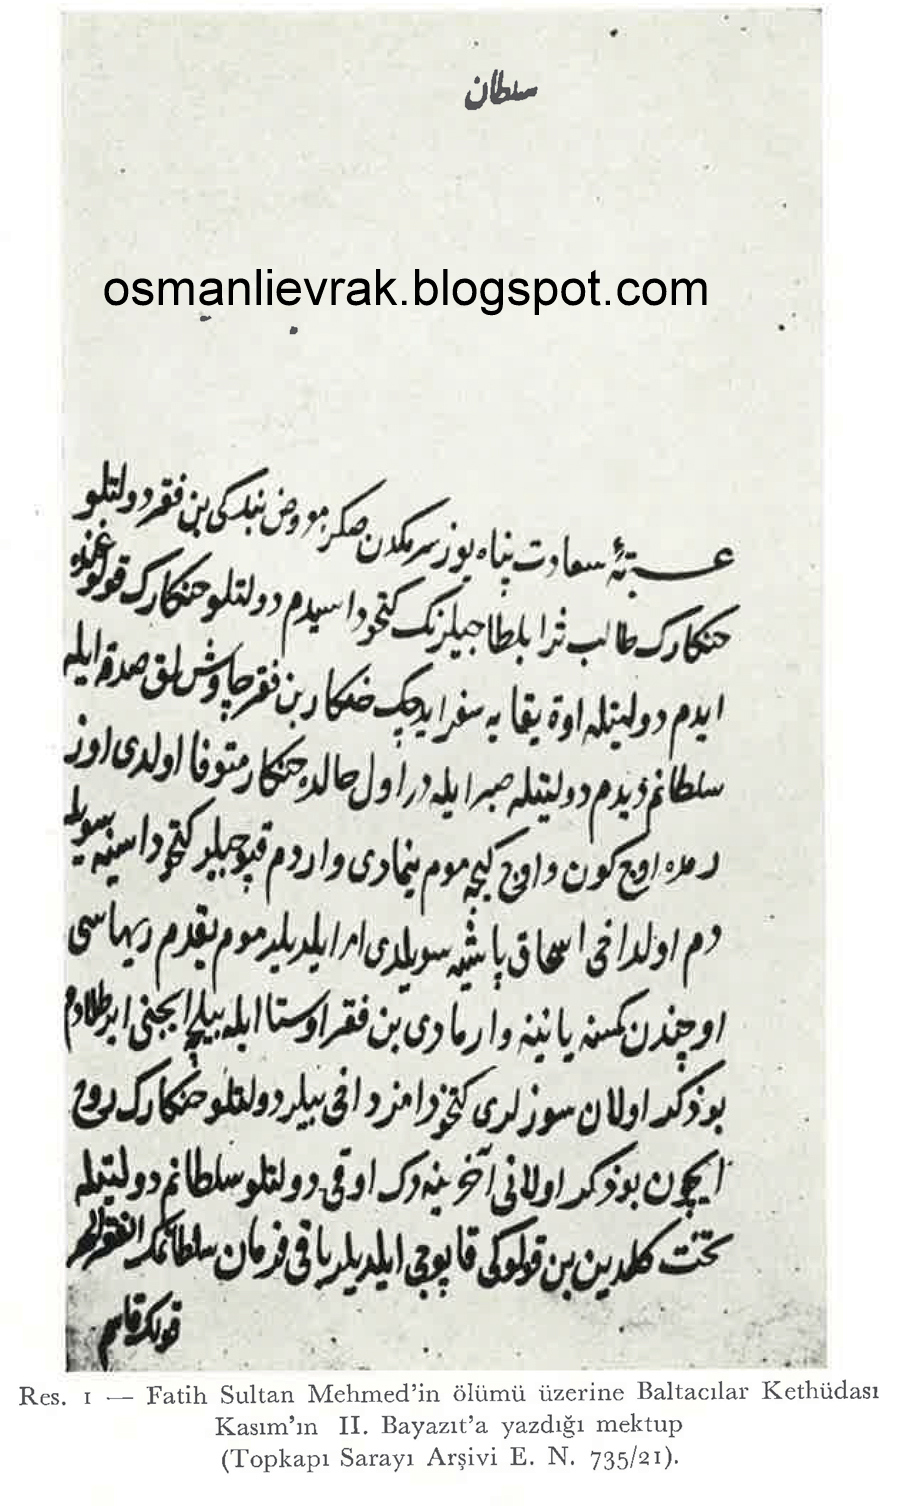 سلطان
osmanlievrak.blogspot.com
عتبۀ سعادت پناه يوز سرمكدن صكره معروض بندكى بن فقير دولتلو
خنكارك طالب ثرا بلطاجيلرنك كتخوداسيدم دولتلو خنكارك قوللوغنده
ايدم دولتيله اوۀ يقايه سفر ايديجك خنكار بن فقيره چاوشلق صدقه ايله
سلطانم ديدم دولتيله صبر ايله در اول حالده خنكار متوفا اولدى اوز
رنده اوچ كون و اوچ كيجه موم ينمادى واردم قپوجيلر كتخوداسينه سويله
دم اول داخى اسحاق پاشيه سويلدى امر ايلديلر موم يقدم ريهاسى
اوچندن كمسنه يانينه وارمادى بن فقير اوستا ايله بيله ايچنى ايرطلادم
بو ذكر اولان سوزلرى كتخودامز داخى بيلر دولتلو خنكارك روح
ايچون بو ذكر اولانى آخرينه دك اوقى دولتلو سلطانم دولتيله
تخت كلدين بن قولوكى قاپوجى ايلديلر باقى فرمان سلطانمك الفقير الحقير
قولك قاسم
Res. 1 — Fatih Sultan Mehmed'in ölümü üzerine Baltacılar Kethüdası
Kasım'ın II. Bayazıt'a yazdığı mektup
(Topkapı Sarayı Arşivi E. N. 735/21).